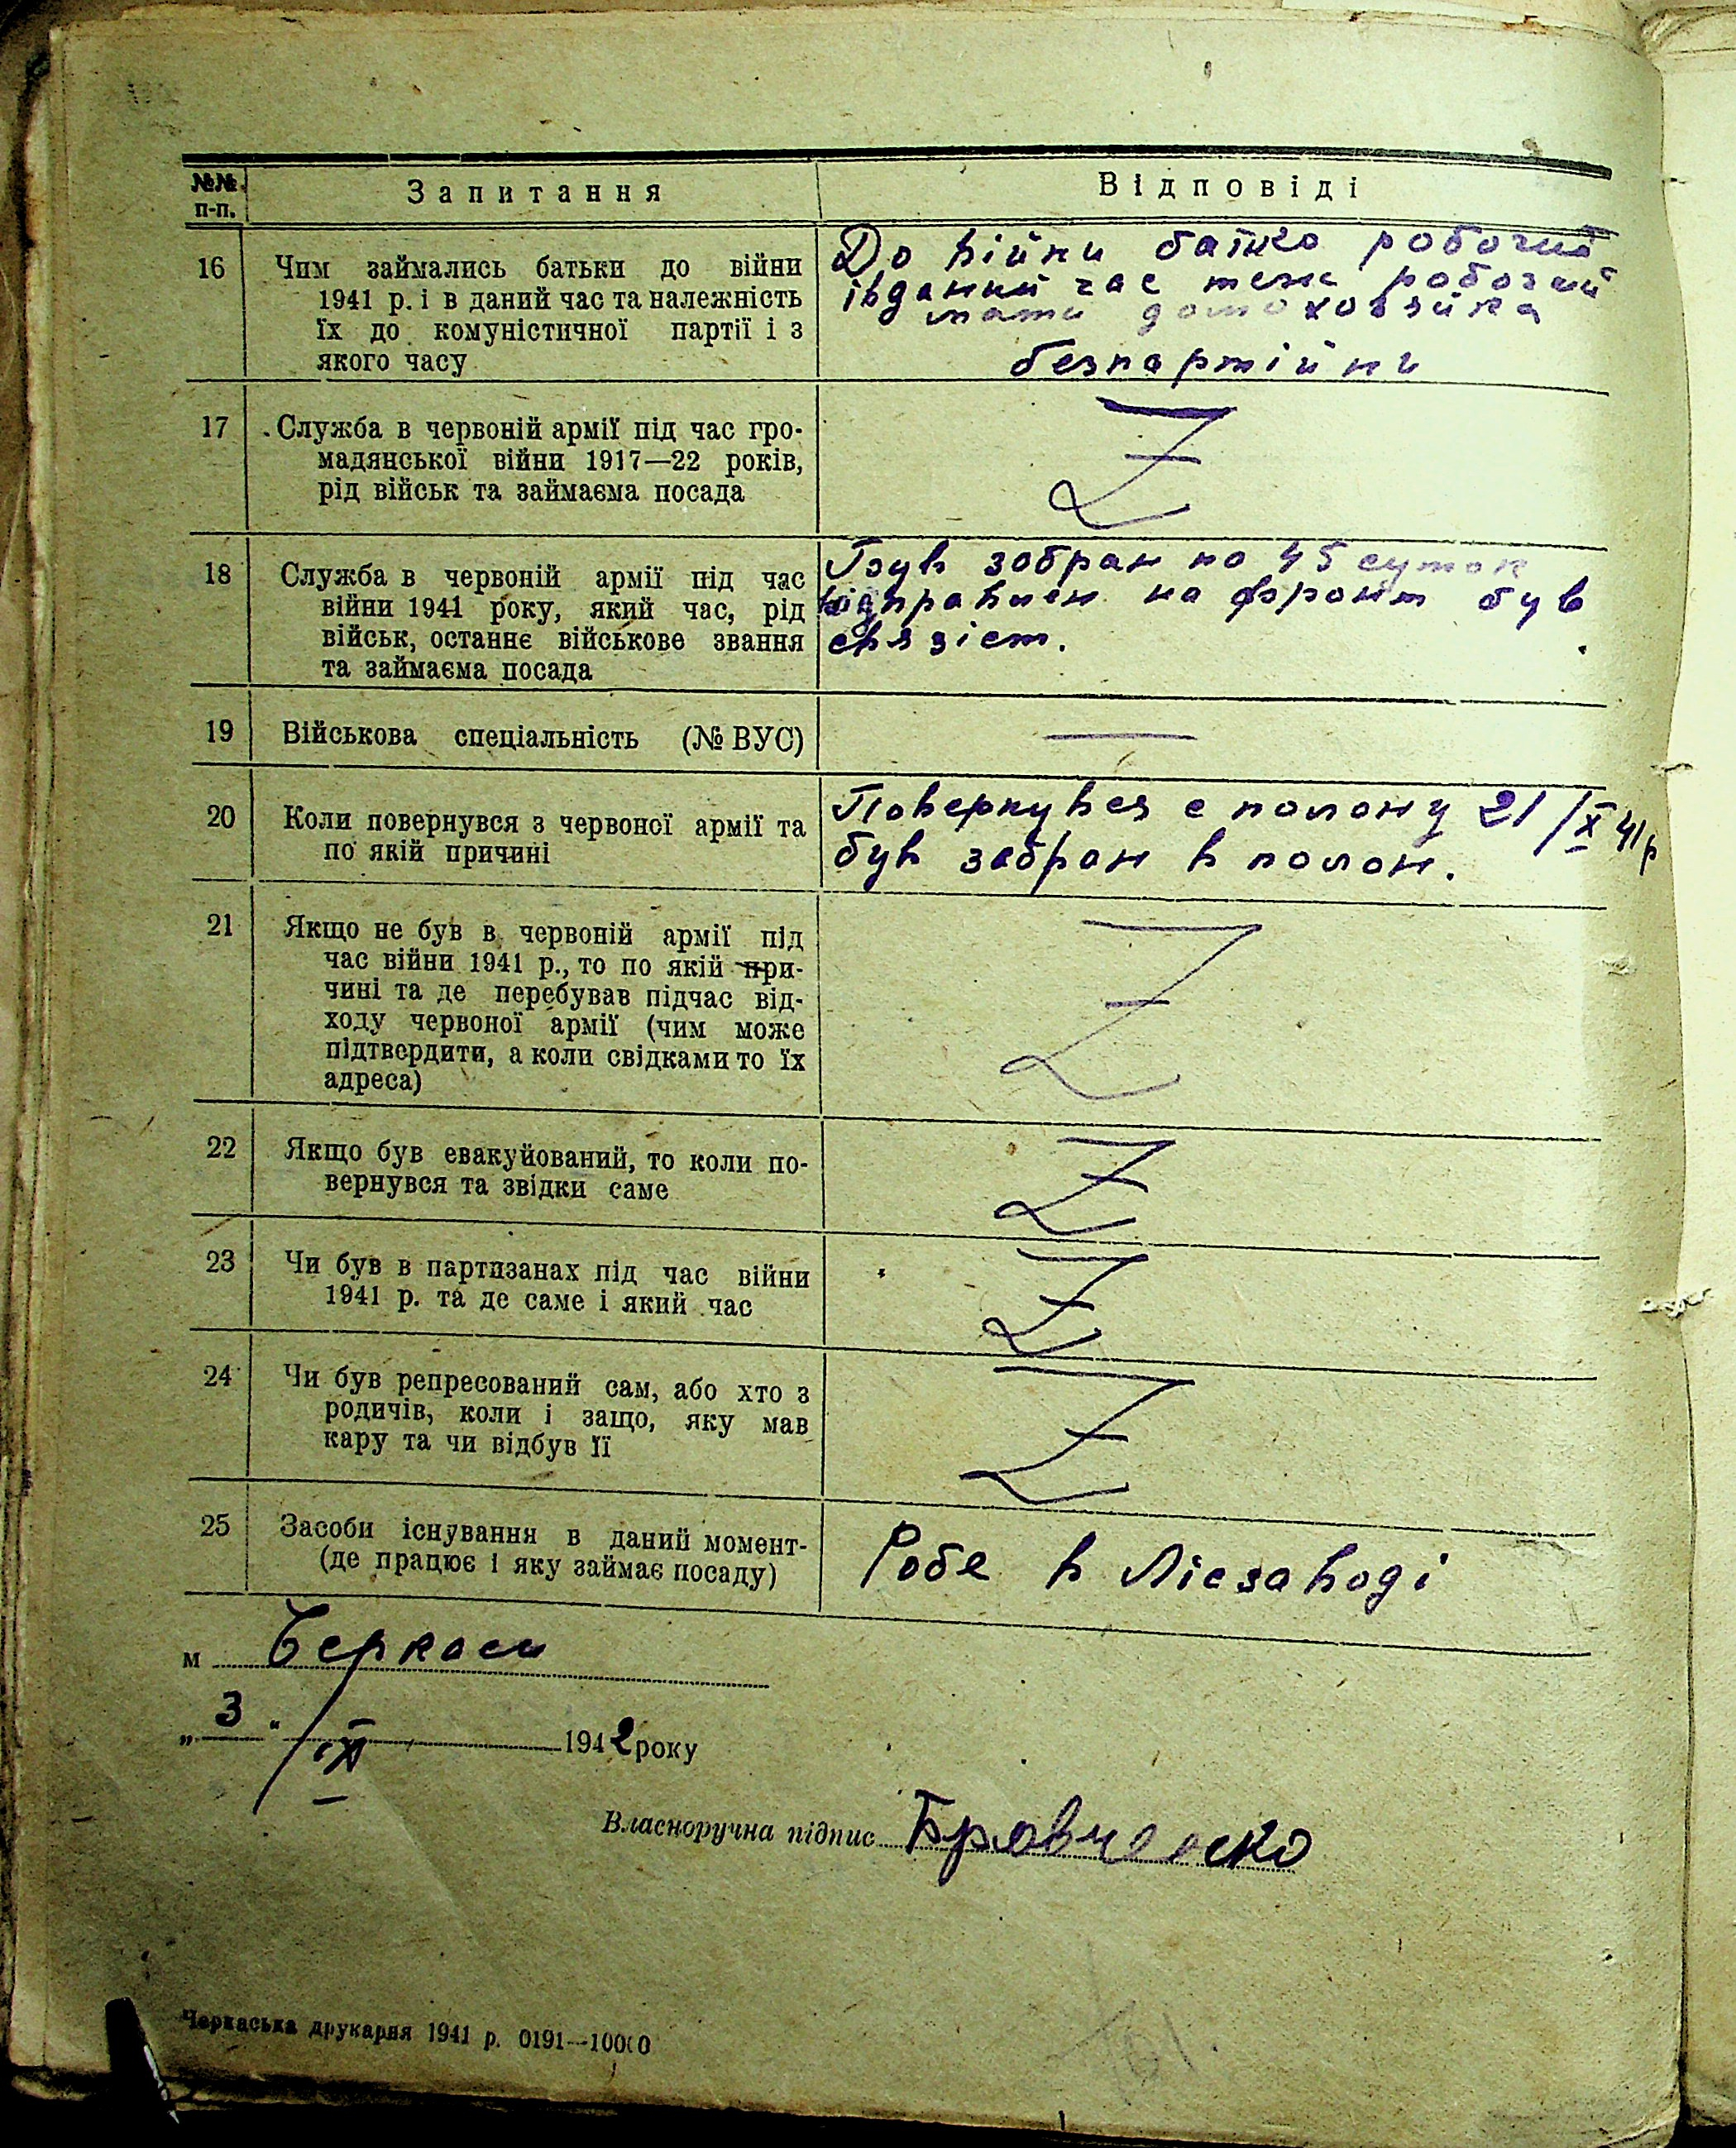 №№ п-п.
Запитання
Відповіді
16
Чим займались батьки до війни
1941 р. і в даний час та належність
їх до комуністичної партії і з
якого часу
До війни батько робочий
івданий час теж робочий
мати домохозяйка
безпартійни
17
Служба в червоній армії під час гро-
мадянської війни 1917—22 років,
рід військ та займаєма посада
Z
18
Служба в червоній армії під час
війни 1941 року, який час, рід
військ, останнє військове звання
та займаєма посада
Був зобран на 45 суток
відправлен на фронт був
связіст.
19
Військова спеціальність (№ ВУС)
—
20
Коли повернувся з червоної армії та
по якій причині
Повернувся с полону 21/X 41р
був забран в полон.
21
Якщо не був в червоній армії під
час війни 1941 р., то по якій при-
чині та де перебував підчас від-
ходу червоної армії (чим може
підтвердити, а коли свідками то їх
адреса)
Z
22
Якщо був евакуйований, то коли по-
вернувся та звідки саме
Z
23
Чи був в партизанах під час війни
1941 р. та де саме і який час
Z
24
Чи був репресований сам, або хто з
родичів, коли і защо, яку мав
кару та чи відбув її
Z
25
Засоби існування в даний момент-
(де працює і яку займає посаду)
Робе в Лісзаводі
м Черкаси
„3“ / 1942 року
Власноручна підпис Бровченко
Черкаська друкарня 1941 р. 0191—10000